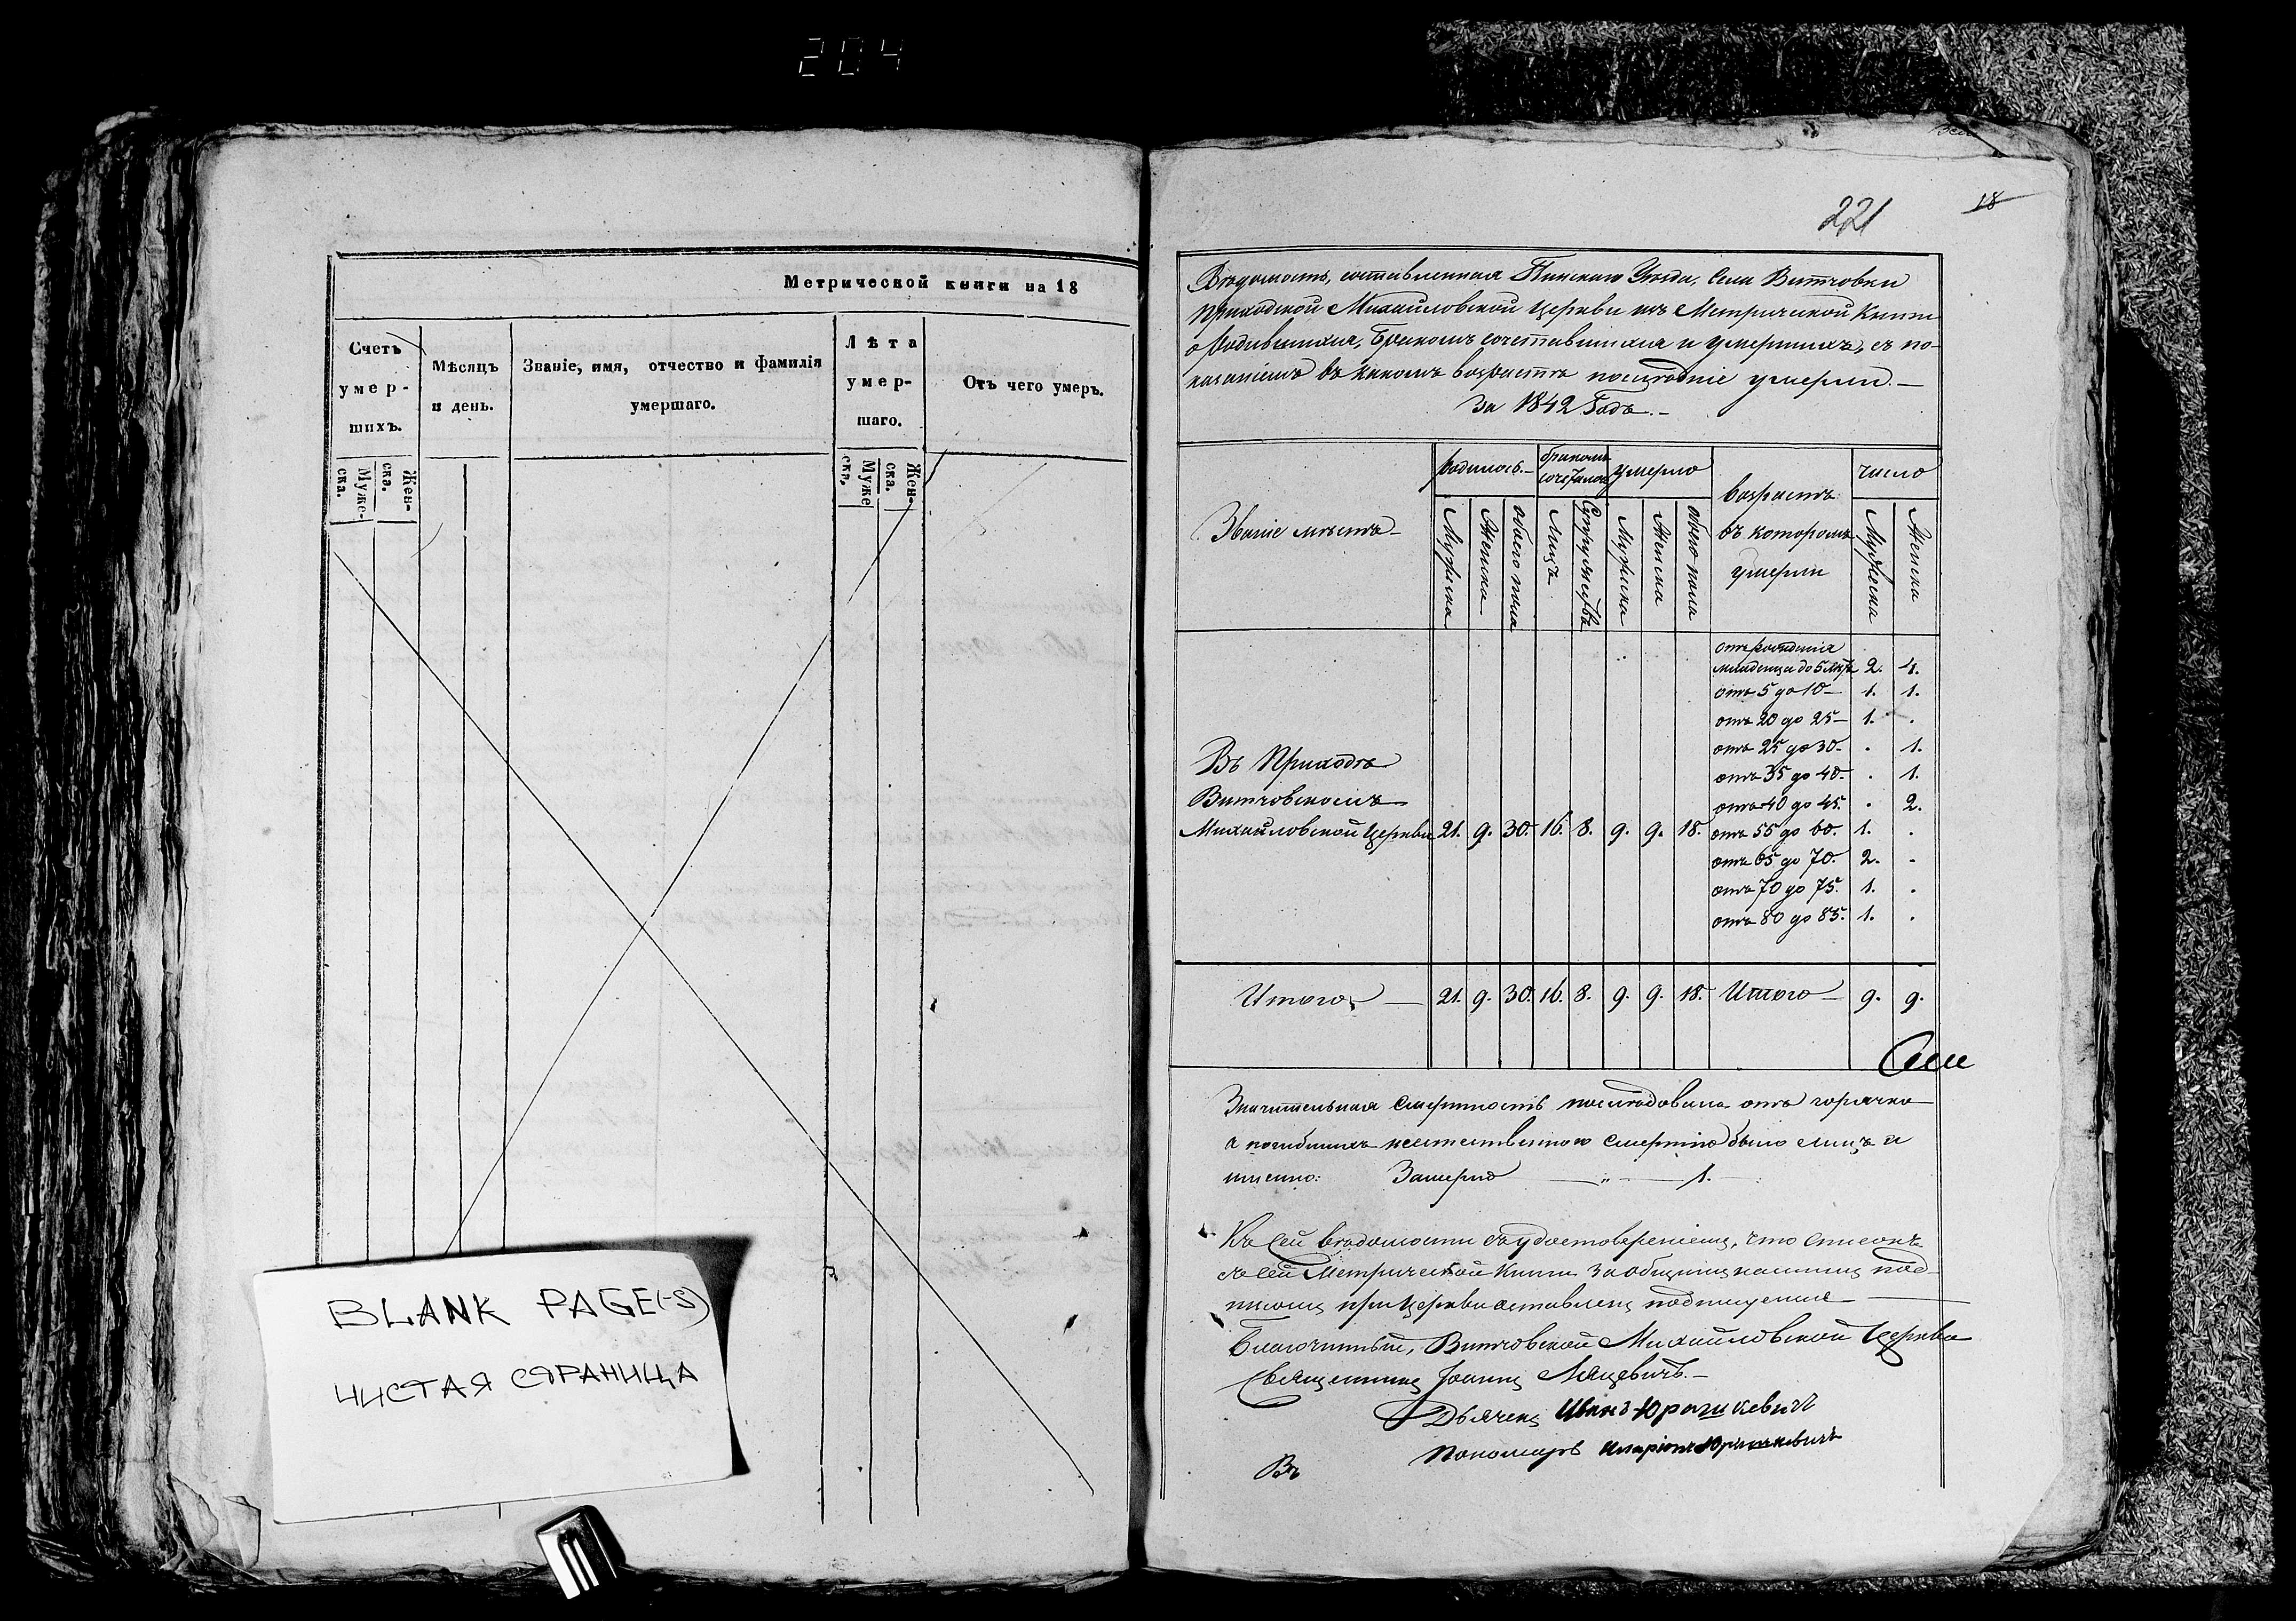 204
Метрической книги на 18
Счетъ умер- шихъ.
Мѣсяцъ и день.
Званіе, имя, отчество и фамилія умершаго.
Лѣта умер- шаго.
Отъ чего умеръ.
Муже- ска.
Жен- ска.
Муже ска.
Жен- ска.
BLANK PAGE(-S)
ЧИСТАЯ СТРАНИЦА
221
18
Вѣдомость, составленная Пинскаго Уѣзда, Села Витчовки
приходской Михайловской Церкви изъ Метрической Книги
о Родившихся, Бракомъ сочетавшихся и умершихъ, съ по-
казаніемъ въ какомъ возрастѣ послѣдніе умерли.—
За 1842 Годъ.—
Званіе мѣстъ
родилось
бракомъ сочеталось
умерло
возрастъ въ которомъ умерли
число
Мужеска
Женска
обоего пола
Лицъ
Супружествъ
Мужеска
Женска
обоего пола
Мужеска
Женска
отъ рожденія
младенца до 5 лѣтъ 2. 4.
отъ 5 до 10— 1. 1.
отъ 20 до 25— 1. .
отъ 25 до 30.— . 1.
отъ 35 до 40.— . 1.
отъ 40 до 45. . 2.
Въ Приходѣ
Витчовскомъ
Михайловской Церкви 21. 9. 30. 16. 8. 9. 9. 18. отъ 55 до 60. 1. .
отъ 65 до 70. 2. .
отъ 70 до 75. 1. .
отъ 80 до 85. 1. .
Итого — 21. 9. 30. 16. 8. 9. 9. 18. Итого — 9. 9.
Значительная смертность послѣдовала отъ горячки
а погибшихъ неестественною смертію было лицъ а
именно: Замерло — „ — 1.
Къ сей вѣдомости съ удостовѣреніемъ, что списокъ
съ сей Метрической Книги за общимъ нашимъ под-
писомъ при Церкви оставленъ подписуемся
Благочинный, Витчовской Михайловской Церкви
Священникъ Іоаннъ Ляцевичъ.—
Дьячекъ Иванъ
Пономарь
Въ